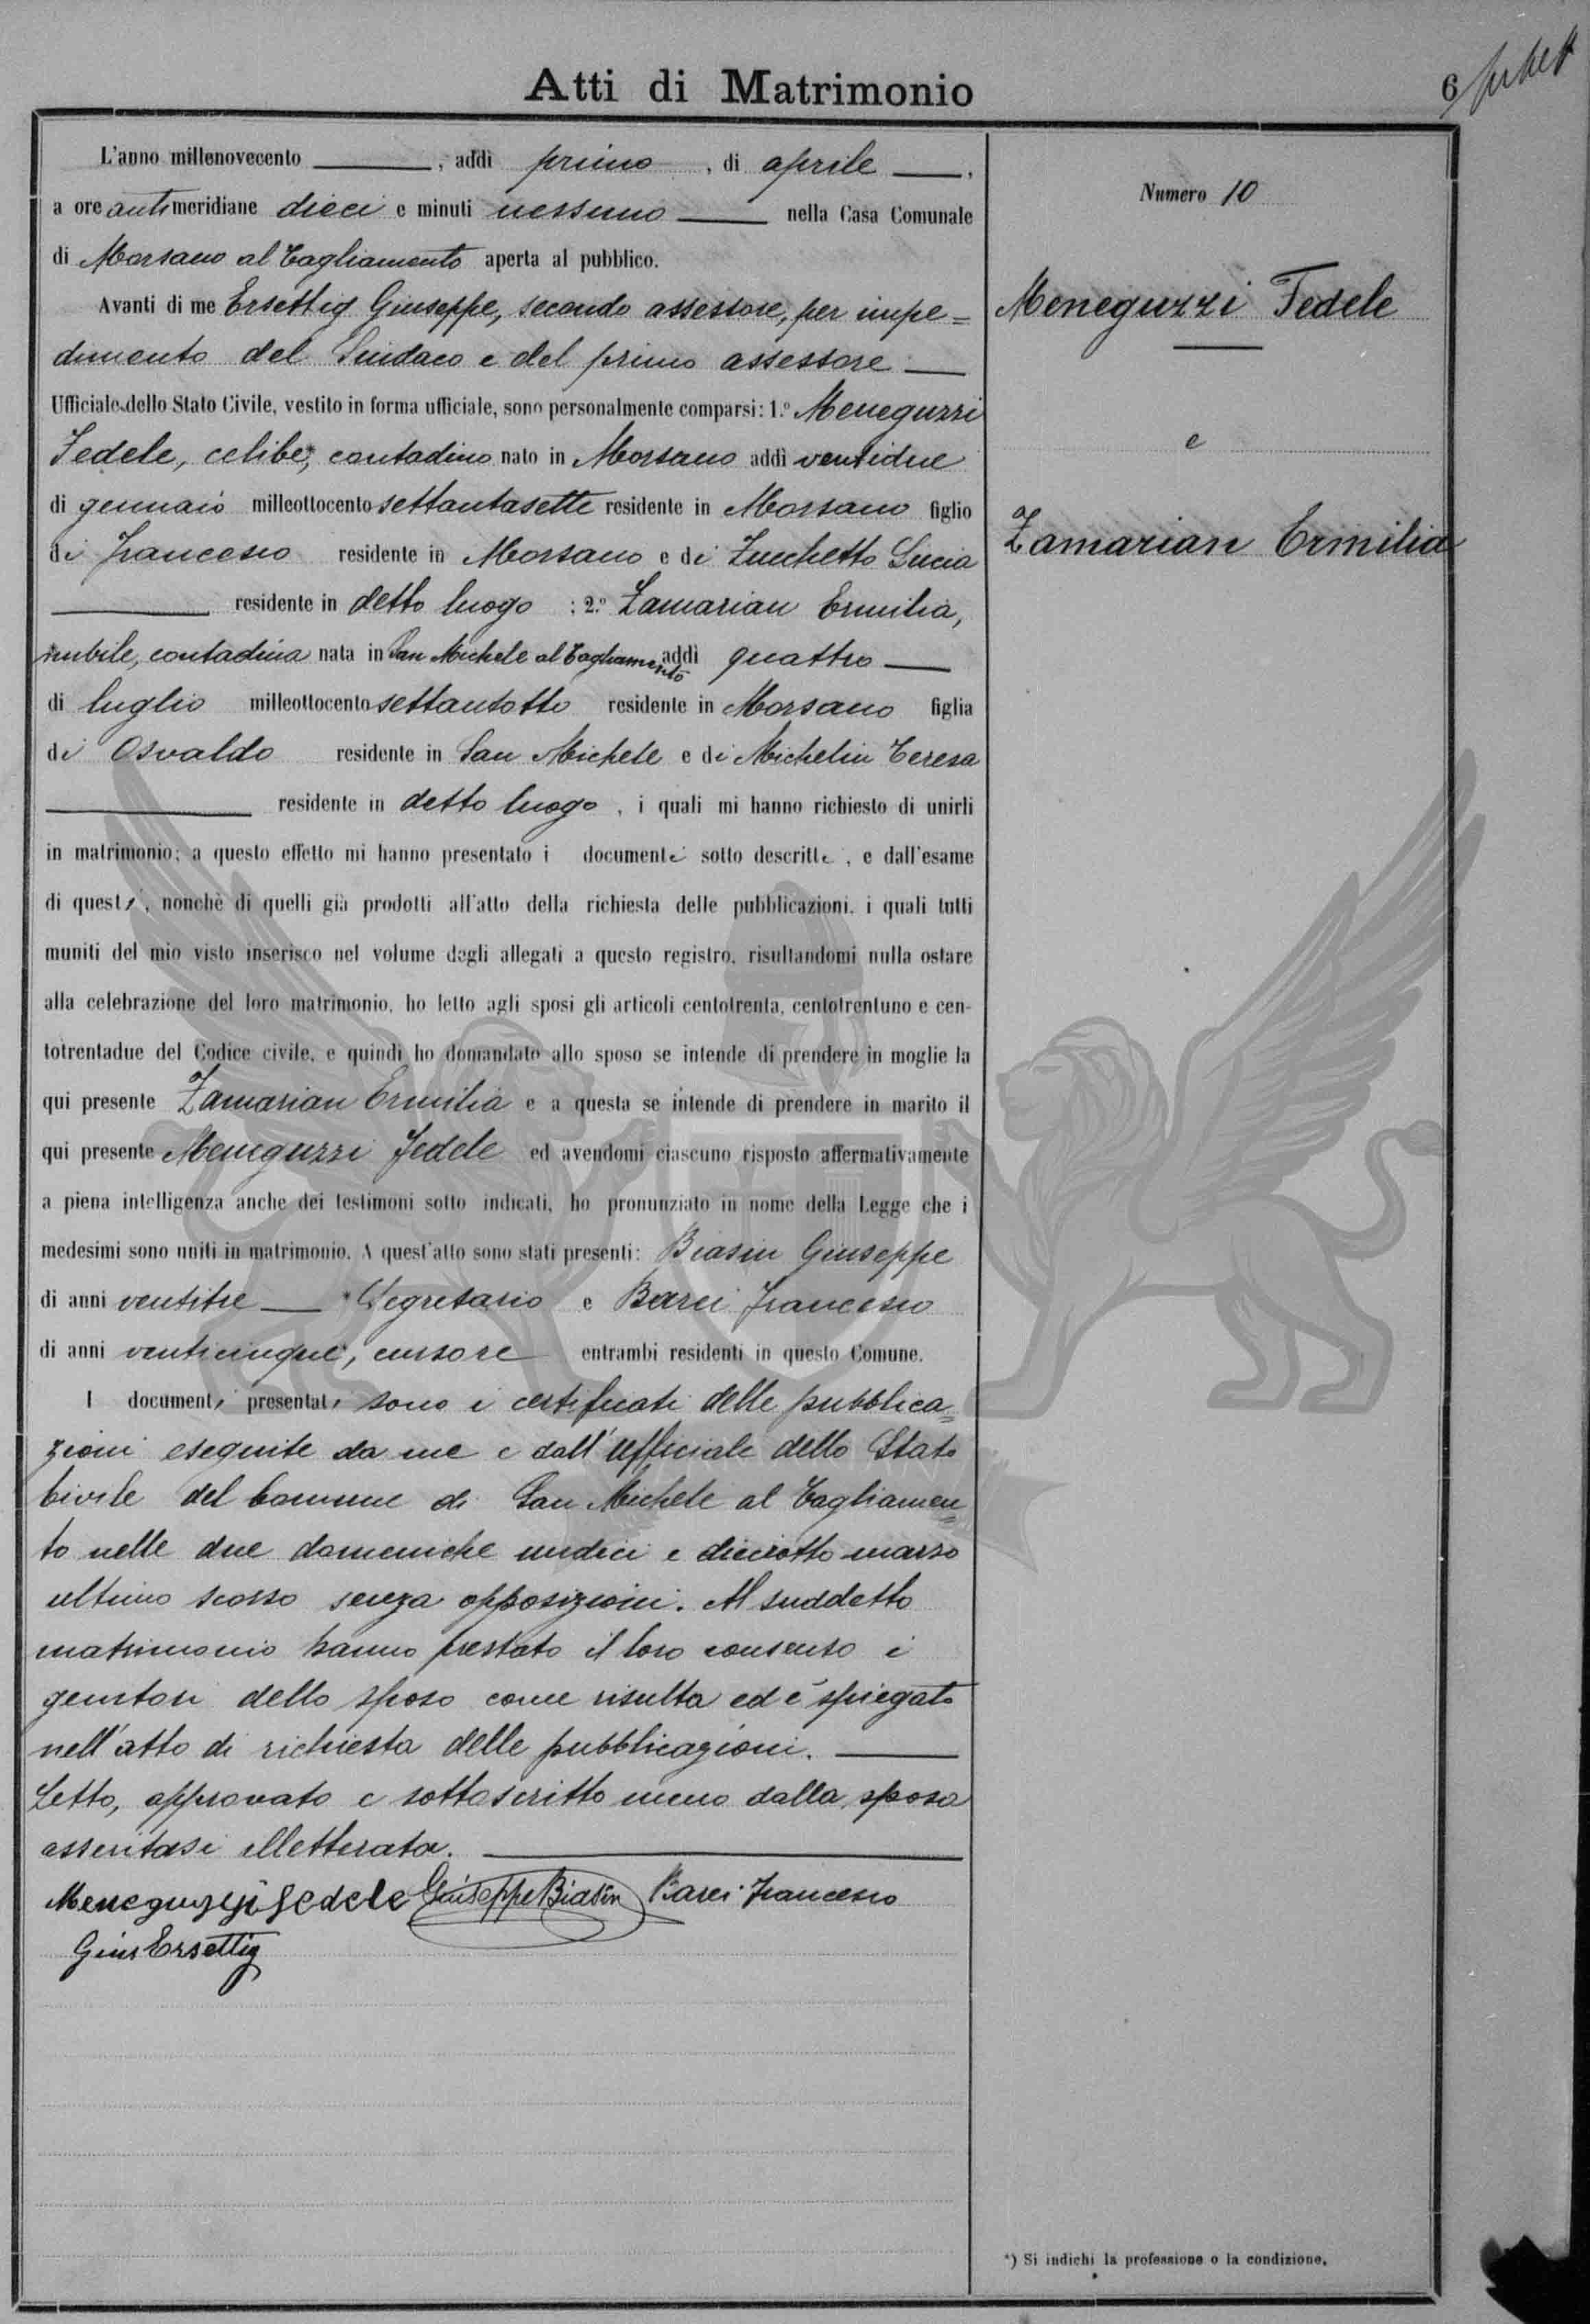 Atti di Matrimonio
6
L'anno millenovecento ———, addì primo, di aprile ———,
a ore antimeridiane dieci e minuti nessuno ——— nella Casa Comunale
di Morsano al Tagliamento aperta al pubblico.
Avanti di me Ersettig Giuseppe, secondo assessore, per impe=
dimento del Sindaco e del primo assessore ———
Ufficiale dello Stato Civile, vestito in forma ufficiale, sono personalmente comparsi: 1.° Meneguzzi
Fedele, celibe, contadino nato in Morsano addì ventidue
di gennaio milleottocento settantasette residente in Morsano figlio
di Francesco residente in Morsano e di Zucchetto Lucia
——— residente in detto luogo ; 2.° Zamarian Ermilia,
nubile, contadina nata in San Michele al Tagliamento addì quattro ———
di luglio milleottocento settantotto residente in Morsano figlia
di Osvaldo residente in San Michele e di Michelin Teresa
——— residente in detto luogo, i quali mi hanno richiesto di unirli
in matrimonio; a questo effetto mi hanno presentato i documenti sotto descritti, e dall'esame
di questi, nonchè di quelli già prodotti all'atto della richiesta delle pubblicazioni, i quali tutti
muniti del mio visto inserisco nel volume degli allegati a questo registro, risultandomi nulla ostare
alla celebrazione del loro matrimonio, ho letto agli sposi gli articoli centotrenta, centotrentuno e cen-
totrentadue del Codice civile, e quindi ho domandato allo sposo se intende di prendere in moglie la
qui presente Zamarian Ermilia e a questa se intende di prendere in marito il
qui presente Meneguzzi Fedele ed avendomi ciascuno risposto affermativamente
a piena intelligenza anche dei testimoni sotto indicati, ho pronunziato in nome della Legge che i
medesimi sono uniti in matrimonio. A quest'atto sono stati presenti: Biasin Giuseppe
di anni ventitre ——— Segretario e Barei Francesco
di anni venticinque, cursore entrambi residenti in questo Comune.
I documenti presentati sono i certificati delle pubblica=
zioni eseguite da me e dall'Ufficiale dello Stato
Civile del Comune di San Michele al Tagliamen=
to nelle due domeniche undici e dieciotto marzo
ultimo scorso senza opposizioni. Al suddetto
matrimonio hanno prestato il loro consenso i
genitori dello sposo come risulta ed è spiegato
nell'atto di richiesta delle pubblicazioni. ———
Letto, approvato e sottoscritto meno dalla sposa
asseritasi illetterata. ———
Meneguzzi Fedele Giuseppe Biasin Barei Francesco
Gius Ersettig
Numero 10
Meneguzzi Fedele
e
Zamarian Ermilia
*) Si indichi la professione o la condizione.